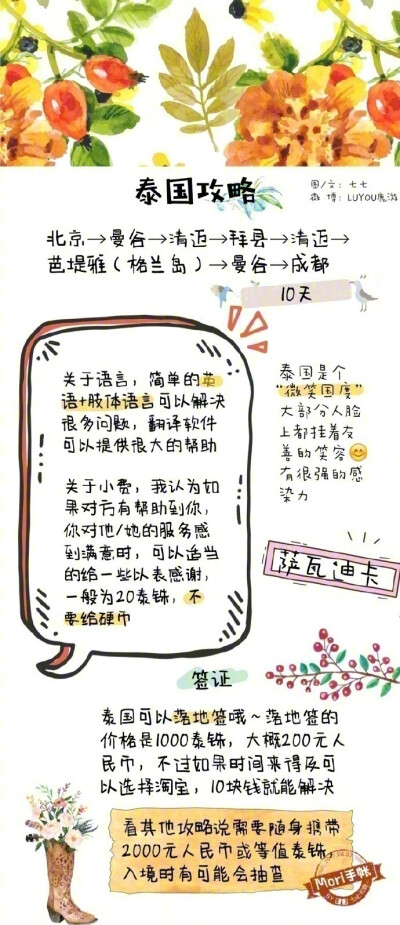 泰国攻略
图/文：七七
微 博：LUYOU鹿游
北京→曼谷→清迈→拜县→清迈→
芭堤雅（格兰岛）→曼谷→成都
10天
关于语言，简单的英
语+肢体语言可以解决
很多问题，翻译软件
可以提供很大的帮助
关于小费，我认为如
果对方有帮助到你，
你对他/她的服务感
到满意时，可以适当
的给一些以表感谢，
一般为20泰铢，不
要给硬币
泰国是个
“微笑国度”
大部分人脸
上都挂着友
善的笑容😊
有很强的感
染力
萨瓦迪卡
签证
泰国可以落地签哦～落地签的
价格是1000泰铢，大概200元人
民币，不过如果时间来得及可
以选择淘宝，10块钱就能解决
看其他攻略说需要随身携带
2000元人民币或等值泰铢
入境时有可能会抽查
Mori手帐